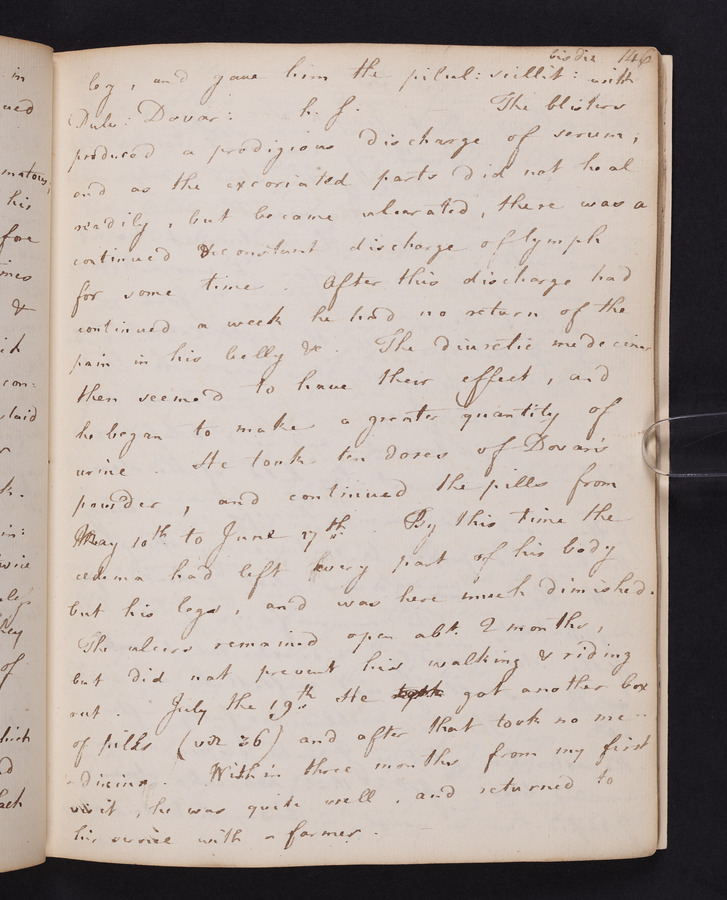 in
ued
matous,
his
fore
mes
&
con:
laid
in:
of
hich
each
bis die 146
leg, and gave him the pilul: scillit: with
Pulv: Dovar: h. s. The blisters
produced a prodigious discharge of serum;
and as the excoriated parts did not heal
readily, but became ulcerated, there was a
continued & constant discharge of lymph
for some time. After this discharge had
continued a week he had no return of the
pain in his belly &c. The diuretic medecines
then seemed to have their effect, and
he began to make a greater quantity of
urine. He took ten doses of Dovar's
powder, and continued the pills from
May 10th to June 17th. By this time the
œdema had left every part of his body
but his legs, and was here much diminished.
The ulcers remained open abt. 2 months,
but did not prevent his walking & riding
out. July the 19th He got another box
of pills (viz 36) and after that took no me-
-dicine. Within three months from my first
visit, he was quite well, and returned to
his service with a farmer.